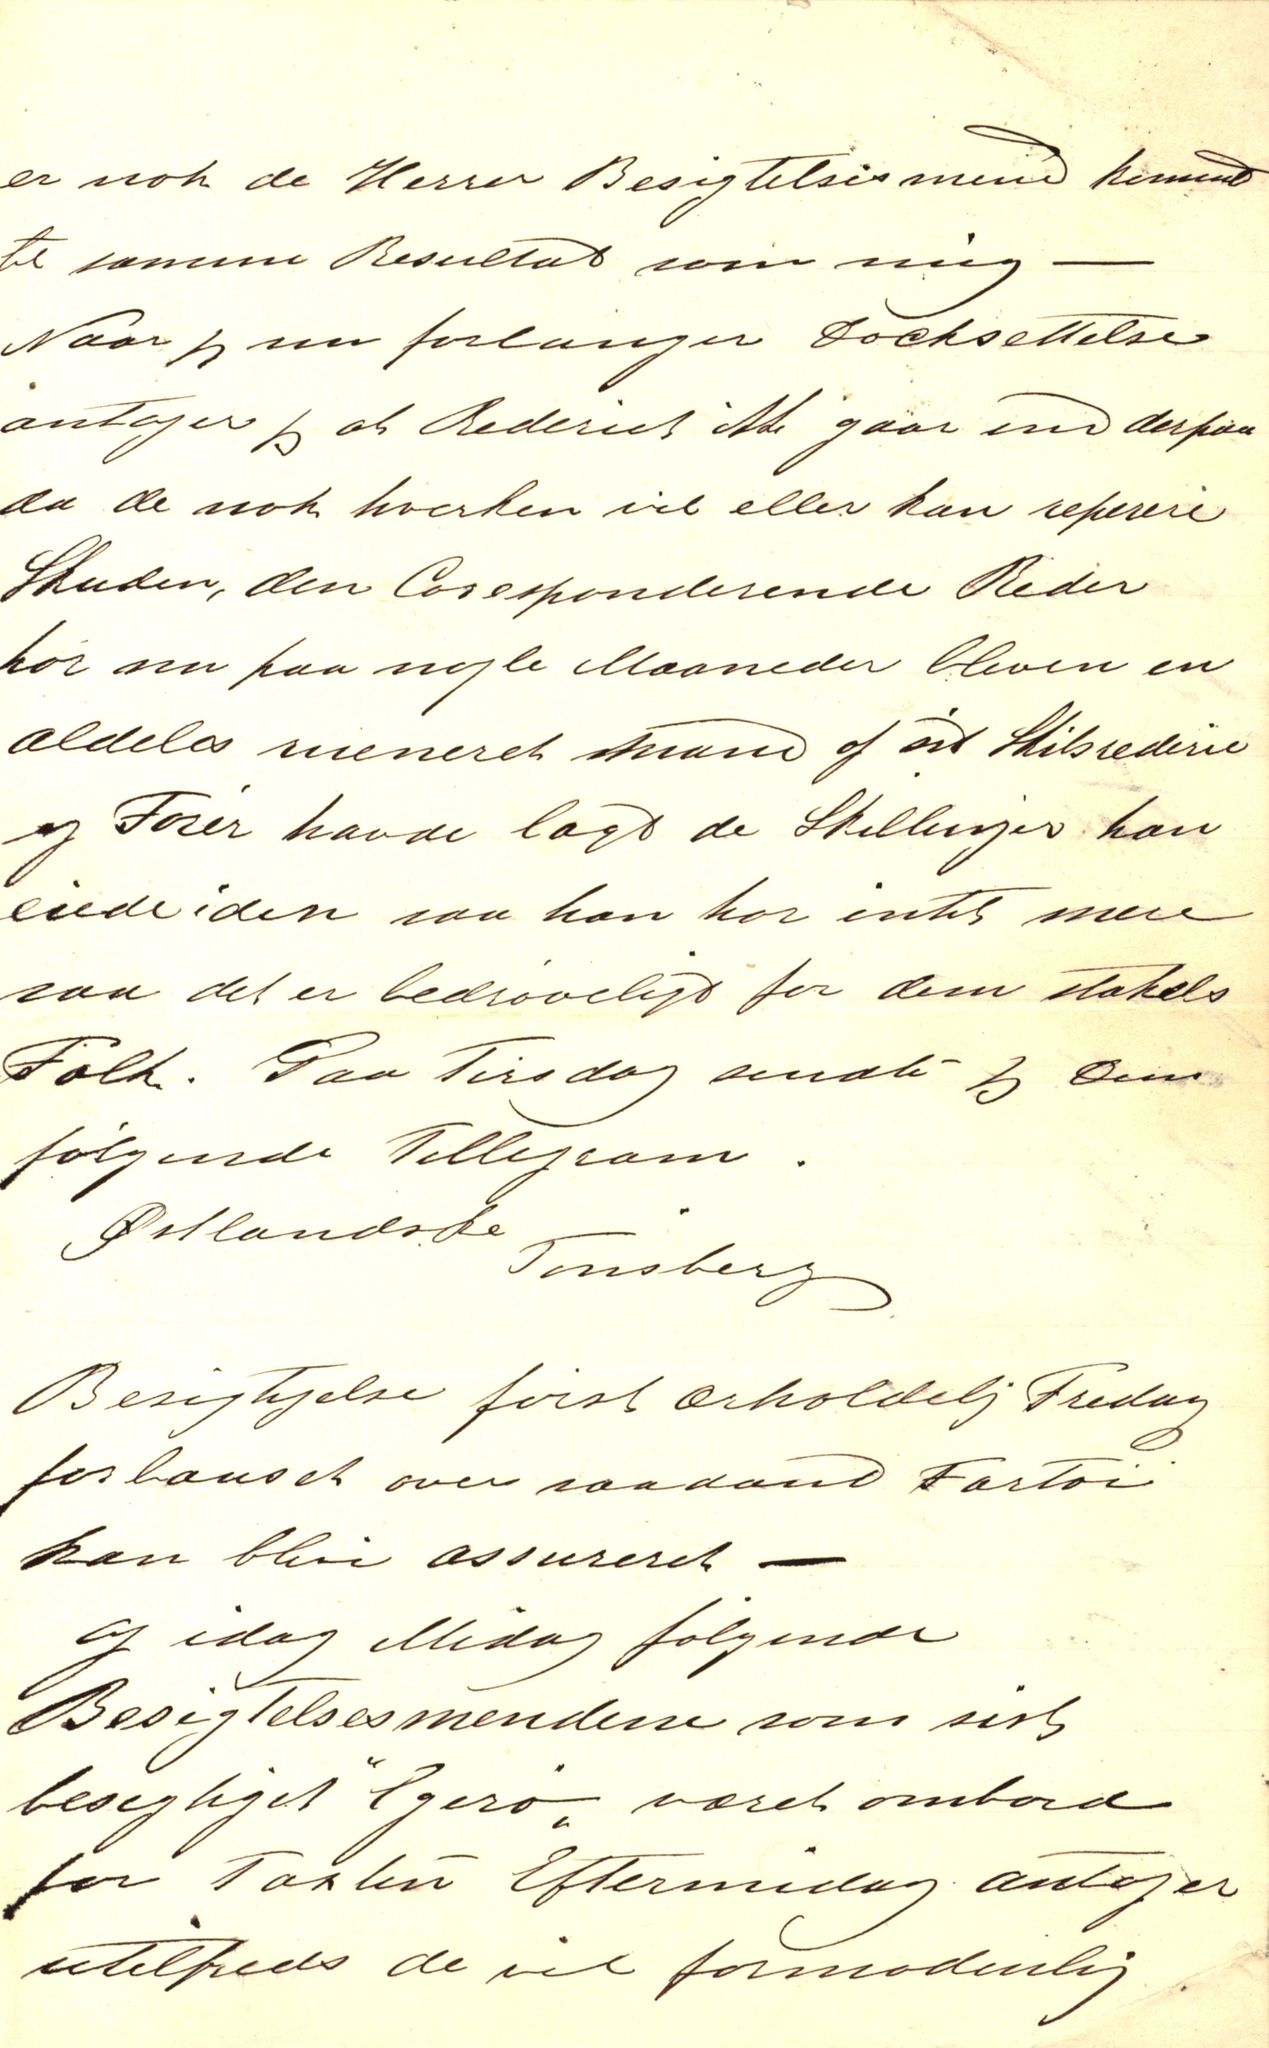 er nok de Herrer Besigtelsesmend kommet
til samme Resultat som mig —
Naar jeg nu forlanger Docksettelse
antager jeg at Rederiet ikke gaar ind derpaa
da de nok hverken vil eller kan reperere
Skuden, den Coresponderende Reder
har nu paa nogle Maaneder bleven en
aldeles rueneret Mand af sit Skibsrederie
og Forér havde lagt de Skillinger han
eiede iden saa han har intet mere
saa det er bedrøveligt for dem stakels
Folk. Paa Tirsdag sendte jeg Dem
følgende Tellegram.
Østlandske
Tønsberg
Besigtigelse først erholdelig Fredag
forbauset over saadand Fartøi
kan blive assureret —
og idag Midag følgende
Besigtelsesmendene som sist
besegtiget "Egerø" været ombord
for Taxten Eftermidag antager
utilfreds de vil formodenlig